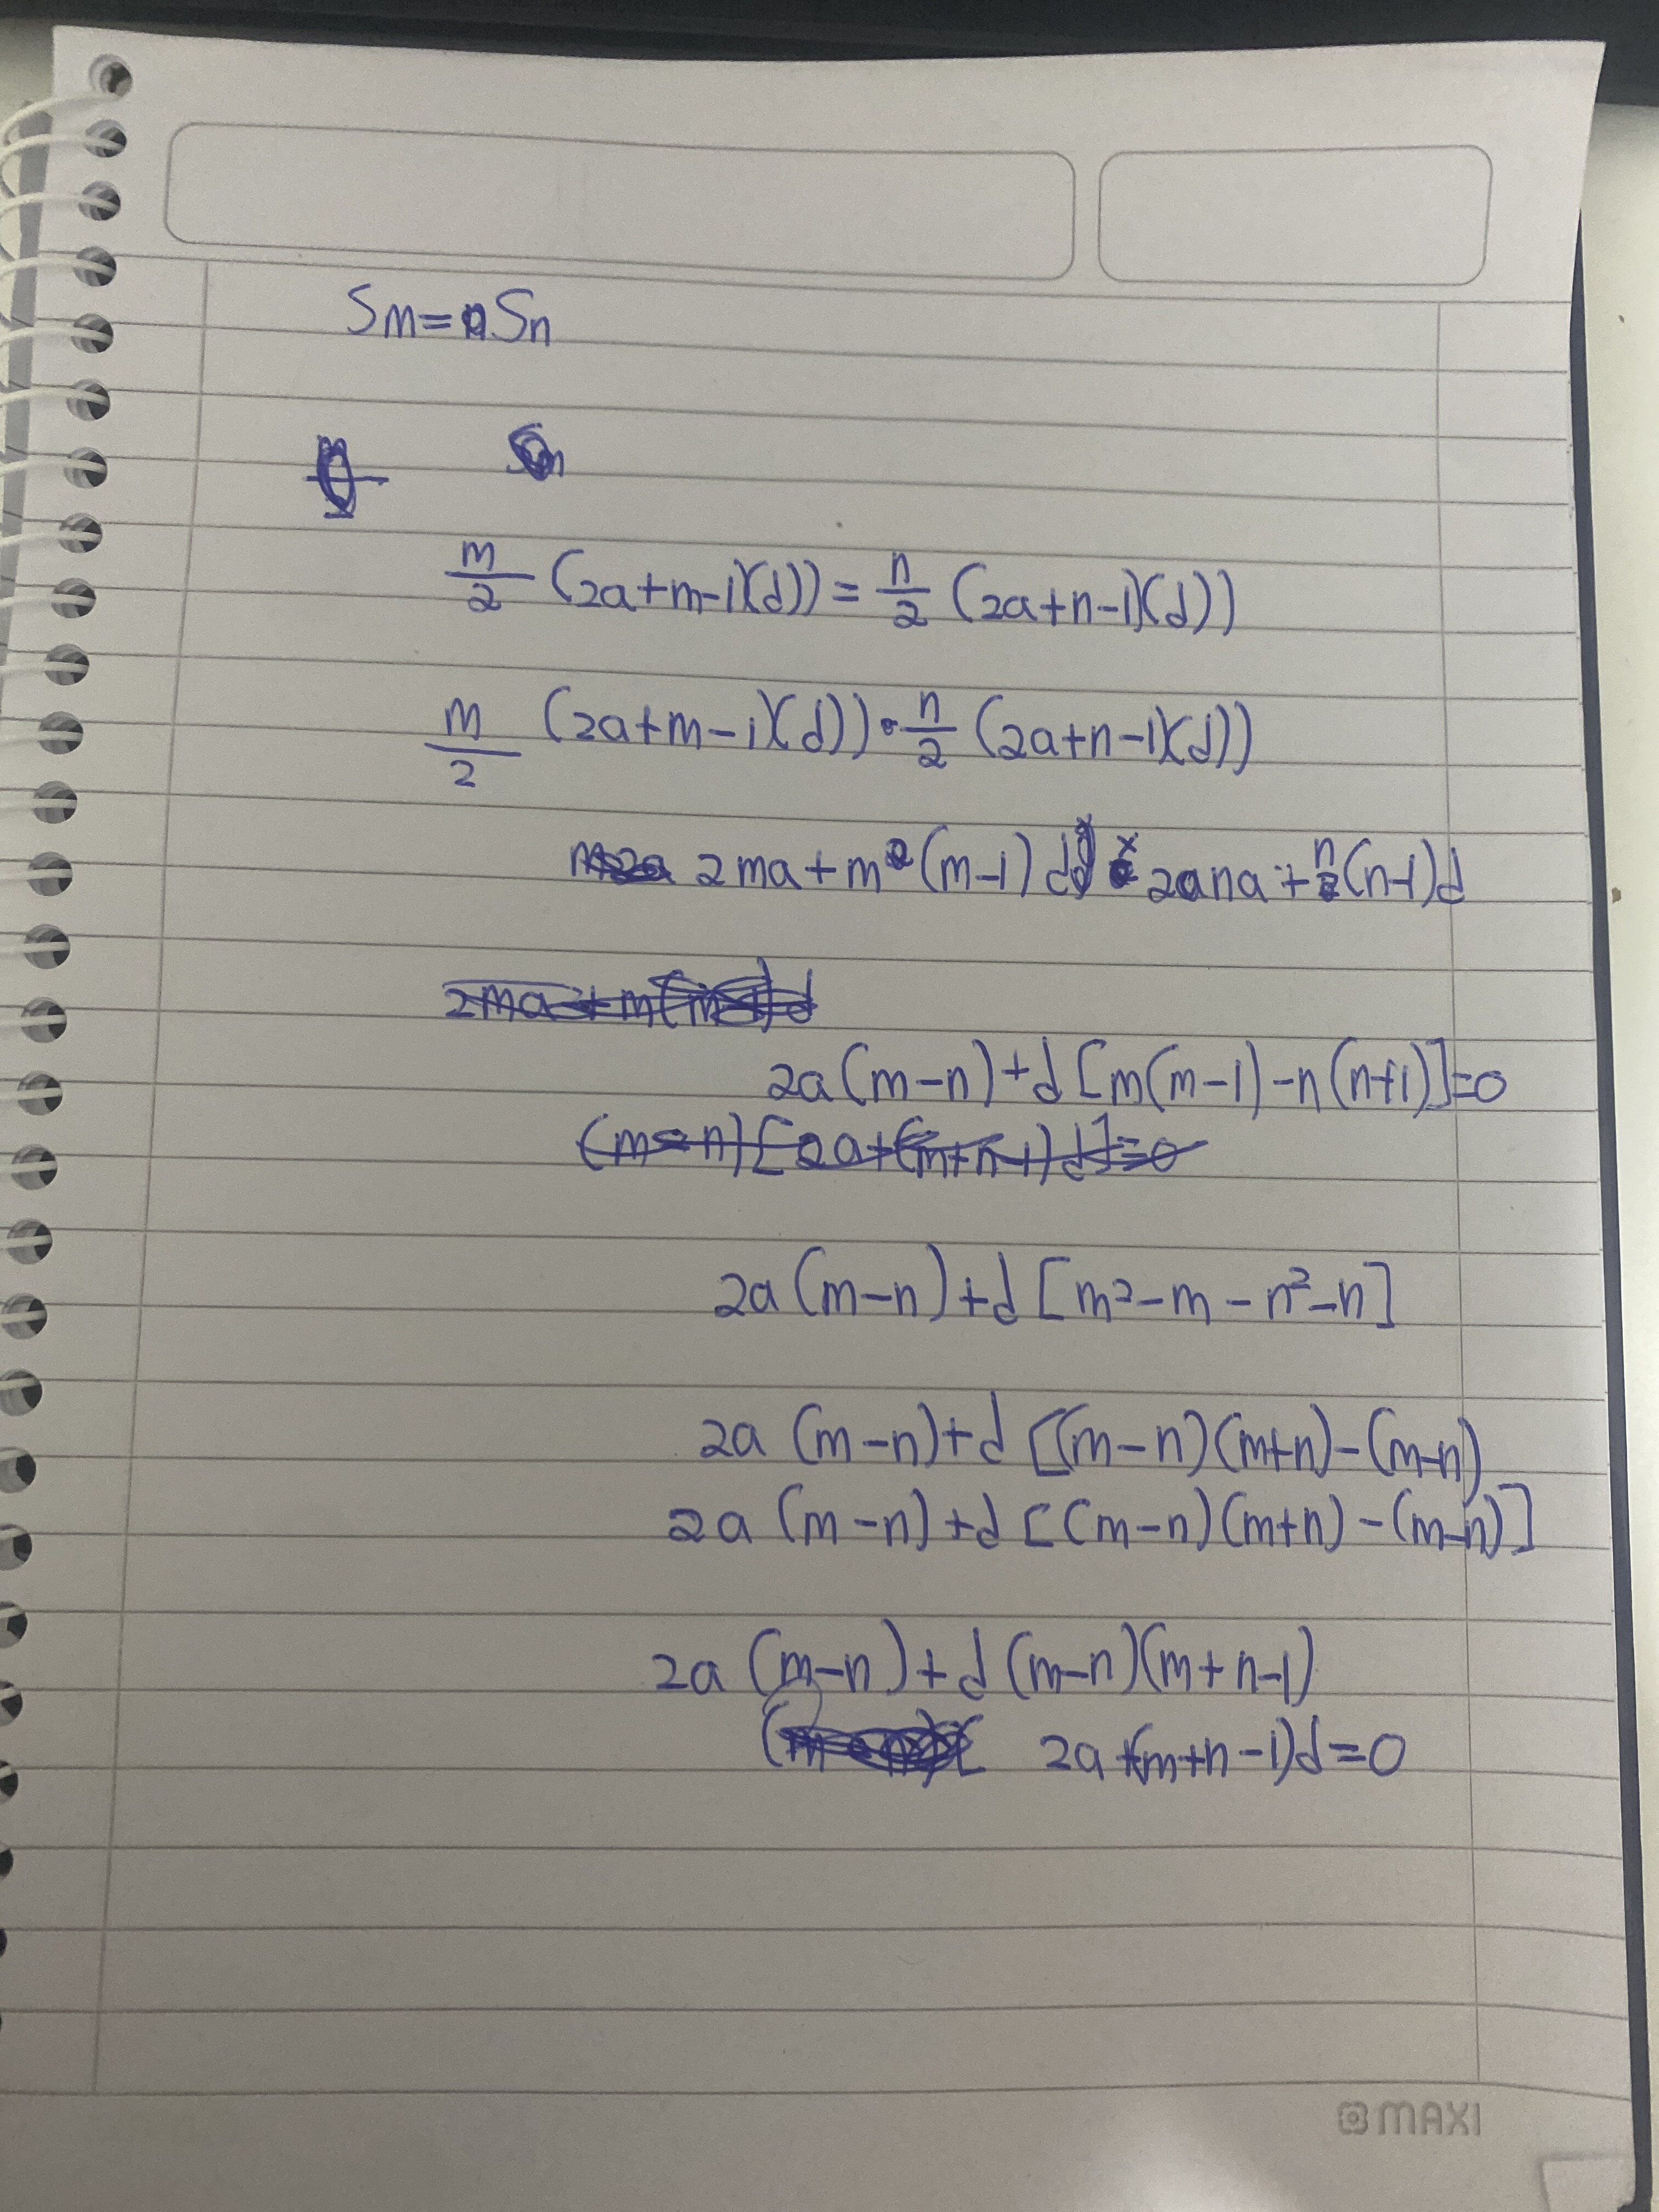 Sm=Sn
m/2 (2a+m-1)(d)) = n/2 (2a+n-1)(d))
m/2 (2a+m-1)(d)) = n/2 (2a+n-1)(d))
2ma+m(m-1)d 2na+n(n-1)d
2a(m-n)+d[m(m-1)-n(n+1)]=0
(m-n)[2a+(m+n-1)d]=0
2a(m-n)+d[m²-m-n²-n]
2a(m-n)+d[(m-n)(m+n)-(m-n)
2a(m-n)+d[(m-n)(m+n)-(m-n)]
2a(m-n)+d(m-n)(m+n-1)
2a+(m+n-1)d=0
MAXI